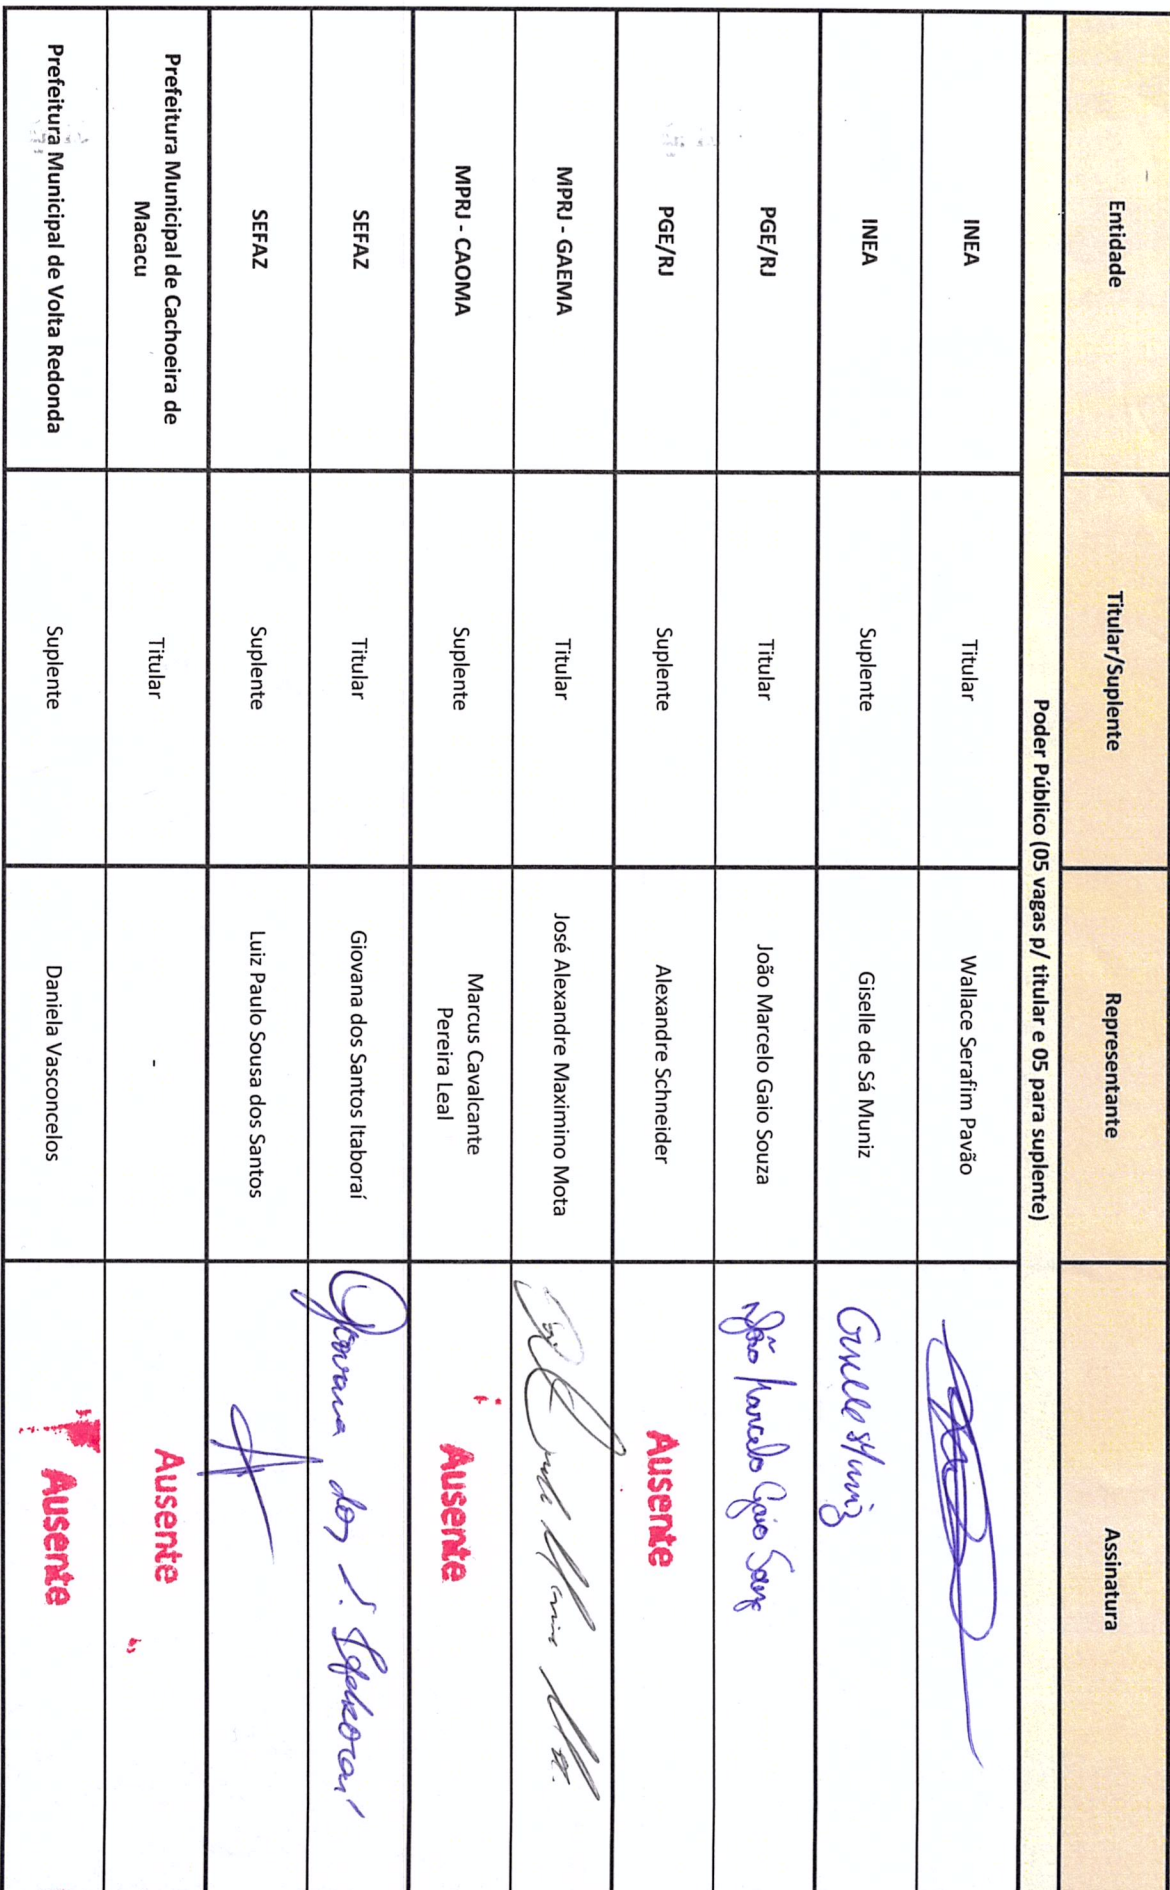 Entidade Titular/Suplente Representante Assinatura
Poder Público (05 vagas p/ titular e 05 para suplente)
INEA Titular Wallace Serafim Pavão
INEA Suplente Giselle de Sá Muniz Giselle S Muniz
PGE/RJ Titular João Marcelo Gaio Souza João Marcelo Gaio Souza
PGE/RJ Suplente Alexandre Schneider Ausente
MPRJ - GAEMA Titular José Alexandre Maximino Mota
MPRJ - CAOMA Suplente Marcus Cavalcante
Pereira Leal Ausente
SEFAZ Titular Giovana dos Santos Itaboraí Giovana dos S. Itaboraí
SEFAZ Suplente Luiz Paulo Sousa dos Santos
Prefeitura Municipal de Cachoeira de
Macacu Titular - Ausente
Prefeitura Municipal de Volta Redonda Suplente Daniela Vasconcelos Ausente